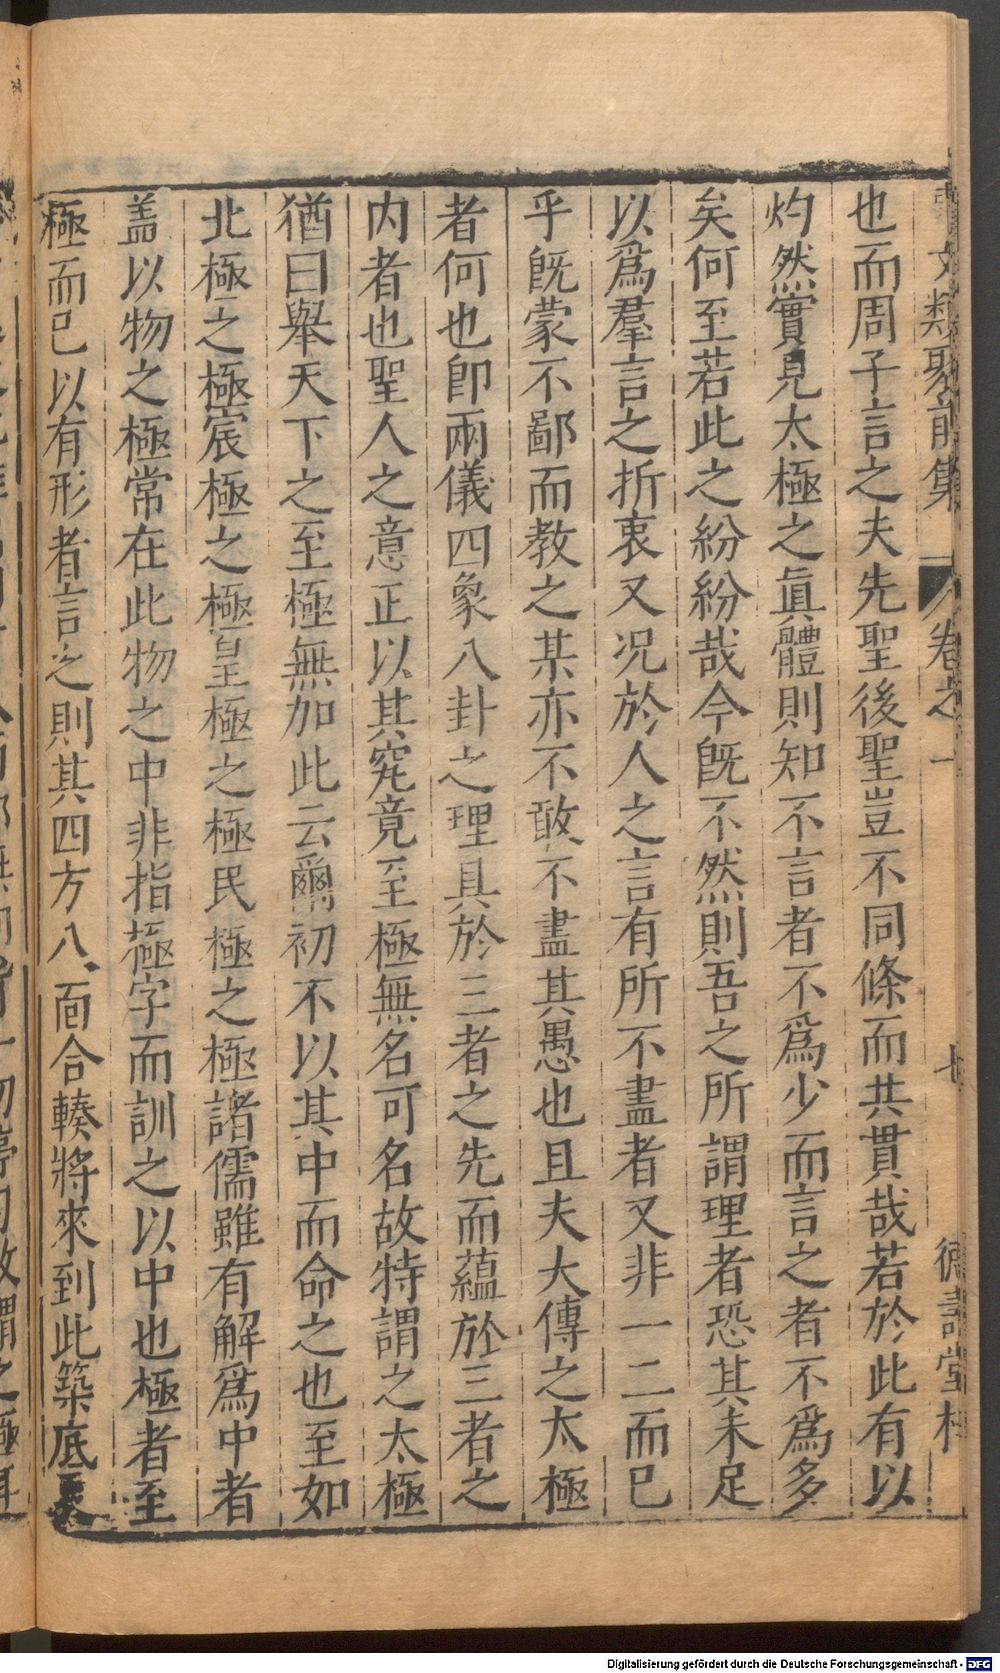 文類聚前集 卷之一 七 德壽堂梓
也而周子言之夫先聖後聖豈不同條而共貫哉若於此有以
灼然實見太極之眞體則知不言者不爲少而言之者不爲多
矣何至若此之紛紛哉今旣不然則吾之所謂理者恐其未足
以爲羣言之折衷又况於人之言有所不盡者又非一二而已
乎旣蒙不鄙而教之某亦不敢不盡其愚也且夫大傳之太極
者何也卽兩儀四象八卦之理具於三者之先而蘊於三者之
内者也聖人之意正以其究竟至極無名可名故特謂之太極
猶曰舉天下之至極無加此云爾初不以其中而命之也至如
北極之極宸極之極皇極之極民極之極諸儒雖有解爲中者
盖以物之極常在此物之中非指極字而訓之以中也極者至
極而已以有形者言之則其四方八面合輳將來到此築底
Digitalisierung gefördert durch die Deutsche Forschungsgemeinschaft - DFG